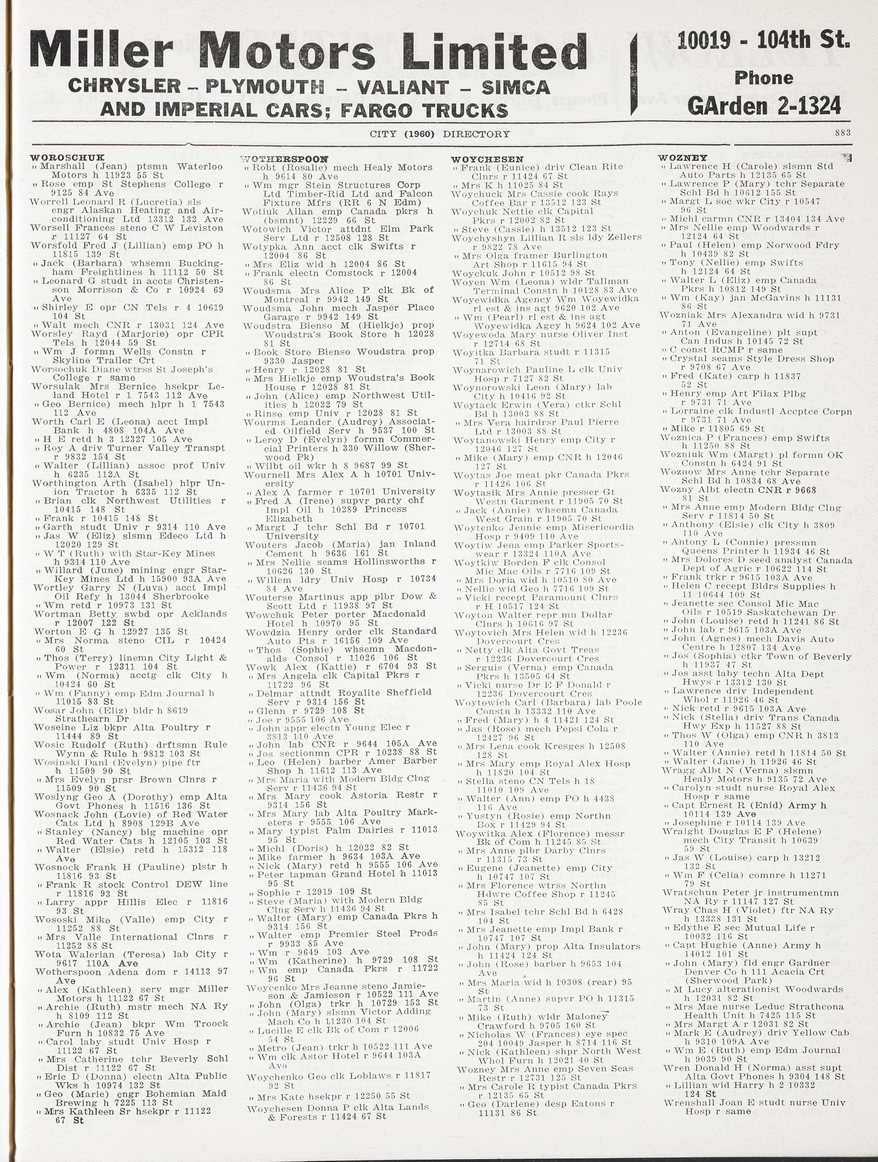 Miller Motors Limited
CHRYSLER – PLYMOUTH – VALIANT – SIMCA
AND IMPERIAL CARS; FARGO TRUCKS
10019 - 104th St.
Phone
GArden 2-1324
CITY (1960) DIRECTORY
883
WOROSCHUK
" Marshall (Jean) ptsmn Waterloo
Motors h 11923 55 St
" Rose emp St Stephens College r
9125 84 Ave
Worrell Leonard R (Lucretia) sls
engr Alaskan Heating and Air-
conditioning Ltd 13312 132 Ave
Worsell Frances steno C W Leviston
r 11127 64 St
Worsfold Fred J (Lillian) emp PO h
11815 139 St
" Jack (Barbara) whsemn Bucking-
ham Freightlines h 11112 50 St
" Leonard G studt in accts Christen-
son Morrison & Co r 10924 69
Ave
" Shirley E opr CN Tels r 4 10619
104 St
" Walt mech CNR r 13031 124 Ave
Worsley Rayd (Marjorie) opr CPR
Tels h 12044 59 St
" Wm J formn Wells Constn r
Skyline Trailer Crt
Worsochuk Diane wtrss St Joseph's
College r same
Worsulak Mrs Bernice hsekpr Le-
land Hotel r 1 7543 112 Ave
" Geo (Bernice) mech hlpr h 1 7543
112 Ave
Worth Carl E (Leona) acct Impl
Bank h 4808 104A Ave
" H E retd h 3 12327 105 Ave
" Roy A driv Turner Valley Transpt
r 9832 154 St
" Walter (Lillian) assoc prof Univ
h 6235 112A St
Worthington Arth (Isabel) hlpr Un-
ion Tractor h 6335 112 St
" Brian clk Northwest Utilities r
10415 148 St
" Frank r 10415 148 St
" Garth studt Univ r 9314 110 Ave
" Jas W (Eliz) slsmn Edeco Ltd h
12020 129 St
" W T (Ruth) with Star-Key Mines
h 9314 110 Ave
" Willard (June) mining engr Star-
Key Mines Ltd h 15900 93A Ave
Wortley Garry N (Luva) acct Impl
Oil Refy h 13044 Sherbrooke
" Wm retd r 10973 131 St
Wortman Betty swbd opr Acklands
r 12007 122 St
Worton E G h 12927 135 St
" Mrs Norma steno CIL r 10424
60 St
" Thos (Terry) linemn City Light &
Power r 12311 104 St
" Wm (Norma) acctg clk City h
10424 60 St
" Wm (Fanny) emp Edm Journal h
11015 83 St
Wosar John (Eliz) bldr h 8619
Strathearn Dr
Woseine Liz bkpr Alta Poultry r
11444 89 St
Wosie Rudolf (Ruth) drftsmn Rule
Wynn & Rule h 9812 103 St
Wosinski Danl (Evelyn) pipe ftr
h 11509 90 St
" Mrs Evelyn prsr Brown Clnrs r
11509 90 St
Woslyng Geo A (Dorothy) emp Alta
Govt Phones h 11516 136 St
Wosnack John (Lovie) of Red Water
Cats Ltd h 8908 129B Ave
" Stanley (Nancy) big machine opr
Red Water Cats h 12105 103 St
" Walter (Elsie) retd h 15312 118
Ave
Wosnock Frank H (Pauline) plstr h
11816 93 St
" Frank R stock Control DEW line
r 11816 93 St
" Larry appr Hillis Elec r 11816
93 St
Wososki Mike (Valle) emp City r
11252 88 St
" Mrs Valle International Clnrs r
11252 88 St
Wota Walerian (Teresa) lab City r
9617 110A Ave
Wotherspoon Adena dom r 14113 97
Ave
" Alex (Kathleen) serv mgr Miller
Motors h 11122 67 St
" Archie (Ruth) mstr mech NA Ry
h 8109 112 St
" Archie (Jean) bkpr Wm Troock
Furn h 10832 75 Ave
" Carol laby studt Univ Hosp r
11122 67 St
" Mrs Catherine tchr Beverly Schl
Dist r 11122 67 St
" Eric D (Donna) electn Alta Public
Wks h 10974 132 St
" Geo (Marie) engr Bohemian Maid
Brewing h 7225 113 St
" Mrs Kathleen Sr hsekpr r 11122
67 St
WOTHERSPOON
" Robt (Rosalie) mech Healy Motors
h 9614 80 Ave
" Wm mgr Stein Structures Corp
Ltd Timber-Rid Ltd and Falcon
Fixture Mfrs (RR 6 N Edm)
Wotiuk Allan emp Canada pkrs h
(bsmnt) 12229 66 St
Wotowich Victor attdnt Elm Park
Serv Ltd r 12508 128 St
Wotypka Ann acct clk Swifts r
12004 86 St
" Mrs Eliz wid h 12004 86 St
" Frank electn Comstock r 12004
86 St
Woudsma Mrs Alice P clk Bk of
Montreal r 9942 149 St
Woudsma John mech Jasper Place
Garage r 9942 149 St
Woudstra Bienso M (Hielkje) prop
Woudstra's Book Store h 12028
81 St
" Book Store Bienso Woudstra prop
9330 Jasper
" Henry r 12028 81 St
" Mrs Hielkje emp Woudstra's Book
House r 12028 81 St
" John (Alice) emp Northwest Util-
ities h 12022 79 St
" Rinse emp Univ r 12028 81 St
Wourms Leander (Audrey) Associat-
ed Oilfield Serv h 9537 100 St
" Leroy D (Evelyn) formn Commer-
cial Printers h 330 Willow (Sher-
wood Pk)
" Wilbt oil wkr h 8 9687 99 St
Wournell Mrs Alex A h 10701 Univ-
ersity
" Alex A farmer r 10701 University
" Fred A (Irene) supvr party chf
Impl Oil h 10289 Princess
Elizabeth
" Margt J tchr Schl Bd r 10701
University
Wouters Jacob (Maria) jan Inland
Cement h 9636 161 St
" Mrs Nellie seams Hollinsworths r
10626 130 St
" Willem ldry Univ Hosp r 10734
84 Ave
Wouterse Martinus app plbr Dow &
Scott Ltd r 11938 97 St
Wowchuk Peter porter Macdonald
Hotel h 10970 95 St
Wowdzia Henry order clk Standard
Auto Pts r 16156 109 Ave
" Thos (Sophie) whsemn Macdon-
alds Consol r 11026 106 St
Wowk Alex (Kattie) r 6704 93 St
" Mrs Angela clk Capital Pkrs r
11722 96 St
" Delmar attndt Royalite Sheffield
Serv r 9314 156 St
" Glenn r 9729 108 St
" Joe r 9555 106 Ave
" John appr electn Young Elec r
3813 110 Ave
" John lab CNR r 9644 105A Ave
" Jos sectionmn CPR r 10238 88 St
" Leo (Helen) barber Amer Barber
Shop h 11612 113 Ave
" Mrs Maria with Modern Bldg Clng
Serv r 11436 94 St
" Mrs Mary cook Astoria Restr r
9314 156 St
" Mrs Mary lab Alta Poultry Mark-
eters r 9555 106 Ave
" Mary typist Palm Dairies r 11013
95 St
" Michl (Doris) h 12022 82 St
" Mike farmer h 9634 103A Ave
" Nick (Mary) retd h 9555 106 Ave
" Peter tapman Grand Hotel h 11013
95 St
" Sophie r 12919 109 St
" Steve (Maria) with Modern Bldg
Clng Serv h 11436 94 St
" Walter (Mary) emp Canada Pkrs h
9314 156 St
" Walter emp Premier Steel Prods
r 9933 85 Ave
" Wm r 9649 103 Ave
" Wm (Katherine) h 9729 108 St
" Wm emp Canada Pkrs r 11722
96 St
Woycenko Mrs Jeanne steno Jamie-
son & Jamieson r 10522 111 Ave
" John (Olga) trkr h 10729 153 St
" John (Mary) slsmn Victor Adding
Mach Co h 11230 104 St
" Lucille R clk Bk of Com r 12006
54 St
" Metro (Jean) trkr h 10522 111 Ave
" Wm clk Astor Hotel r 9644 103A
Ave
Woychenko Geo clk Loblaws r 11817
92 St
" Mrs Kate hsekpr r 12250 55 St
Woychesen Donna P clk Alta Lands
& Forests r 11424 67 St
WOYCHESEN
" Frank (Eunice) driv Clean Rite
Clnrs r 11424 67 St
" Mrs K h 11025 84 St
Woychuck Mrs Cassie cook Rays
Coffee Bar r 13512 123 St
Woychuk Nettie clk Capital
Pkrs r 12002 82 St
" Steve (Cassie) h 13512 123 St
Woychyshyn Lillian R sls ldy Zellers
r 9822 78 Ave
" Mrs Olga framer Burlington
Art Shop r 11615 94 St
Woyckuk John r 10512 98 St
Woyen Wm (Leona) wldr Tallman
Terminal Constn h 10128 83 Ave
Woyewidka Agency Wm Woyewidka
rl est & ins agt 9620 102 Ave
" Wm (Pearl) rl est & ins agt
Woyewidka Agcy h 9624 102 Ave
Woyewoda Mary nurse Oliver Inst
r 12714 68 St
Woyitka Barbara studt r 11315
71 St
Woynarowich Pauline L clk Univ
Hosp r 7127 82 St
Woynorowski Leon (Mary) lab
City h 10416 92 St
Woytack Erwin (Vera) ctkr Schl
Bd h 13003 88 St
" Mrs Vera hairdrsr Paul Pierre
Ltd r 13003 88 St
Woytanowski Henry emp City r
12046 127 St
" Mike (Mary) emp CNR h 12046
127 St
Woytas Joe meat pkr Canada Pkrs
r 11426 106 St
Woytasik Mrs Annie presser Gt
Westn Garment r 11905 70 St
" Jack (Annie) whsemn Canada
West Grain r 11905 70 St
Woytenko Jennie emp Misericordia
Hosp r 9409 110 Ave
Woytiw Jena emp Parker Sports-
wear r 13324 110A Ave
Woytkiw Borden F clk Consol
Mic Mac Oils r 7716 109 St
" Mrs Doria wid h 10510 80 Ave
" Nellie wid Geo h 7716 109 St
" Vicki recept Paramount Clnrs
r H 10517 124 St
Woyton Walter repr mn Dollar
Clnrs h 10616 97 St
Woytovich Mrs Helen wid h 12236
Dovercourt Cres
" Netty clk Alta Govt Treas
r 12236 Dovercourt Cres
" Serguis (Verna) emp Canada
Pkrs h 13505 64 St
" Vicki nurse Dr E F Donald r
12236 Dovercourt Cres
Woytowich Carl (Barbara) lab Poole
Constn h 13332 110 Ave
" Fred (Mary) h 4 11421 124 St
" Jas (Rose) mech Pepsi Cola r
12427 96 St
" Mrs Lena cook Kresges h 12508
128 St
" Mrs Mary emp Royal Alex Hosp
h 11820 104 St
" Stella steno CN Tels h 18
11010 109 Ave
" Walter (Ann) emp PO h 4438
116 Ave
" Yustyn (Rosie) emp Northn
Box r 11429 94 St
Woywitka Alex (Florence) messr
Bk of Com h 11245 85 St
" Mrs Anne plbr Darby Clnrs
r 11315 73 St
" Eugene (Jeanette) emp City
h 10747 107 St
" Mrs Florence wtrss Northn
Hdwre Coffee Shop r 11245
85 St
" Mrs Isabel tchr Schl Bd h 6428
104 St
" Mrs Jeanette emp Impl Bank r
10747 107 St
" John (Mary) prop Alta Insulators
h 11424 124 St
" John (Rose) barber h 9653 104
Ave
" Mrs Maria wid h 10308 (rear) 95
St
" Martin (Anne) supvr PO h 11315
73 St
" Mike (Ruth) wldr Maloney
Crawford h 9705 160 St
" Nicholas W (Frances) eye spec
204 10049 Jasper h 8714 116 St
" Nick (Kathleen) shpr North West
Whol Furn h 12021 40 St
Wozney Mrs Anne emp Seven Seas
Restr r 12731 125 St
" Mrs Carole R typist Canada Pkrs
r 12135 65 St
" Geo (Darlene) desp Eatons r
11131 86 St
WOZNEY
" Lawrence H (Carole) slsmn Std
Auto Parts r 12135 65 St
" Lawrence P (Mary) tchr Separate
Schl Bd h 10612 155 St
" Margt L soc wkr City r 10547
96 St
" Michl carmn CNR r 13404 134 Ave
" Mrs Nellie emp Woodwards r
12124 64 St
" Paul (Helen) emp Norwood Fdry
h 10439 82 St
" Tony (Nellie) emp Swifts
h 12124 64 St
" Walter L (Eliz) emp Canada
Pkrs h 10812 149 St
" Wm (Kay) jan McGavins h 11131
86 St
Wozniak Mrs Alexandra wid h 9731
71 Ave
" Anton (Evangeline) plt supt
Can Indus h 10145 72 St
" C const RCMP r same
" Crystal seams Style Dress Shop
r 9708 67 Ave
" Fred (Kate) carp h 11837
52 St
" Henry emp Art Filax Plbg
r 9731 71 Ave
" Lorraine clk Industl Accptce Corpn
r 9731 71 Ave
" Mike r 11805 69 St
Woznica P (Frances) emp Swifts
h 11250 88 St
Wozniuk Wm (Margt) pl formn OK
Constn h 6424 91 St
Woznow Mrs Anne tchr Separate
Schl Bd h 10834 68 Ave
Wozny Albt electn CNR r 9668
81 St
" Mrs Anne emp Modern Bldg Clng
Serv r 11814 50 St
" Anthony (Elsie) clk City h 3809
110 Ave
" Antony L (Connie) pressmn
Queens Printer h 11934 46 St
" Mrs Dolores D seed analyst Canada
Dept of Agric r 10622 114 St
" Frank trkr r 9615 103A Ave
" Helen C recept Bldrs Supplies h
11 10644 109 St
" Jeanette sec Consol Mic Mac
Oils r 10519 Saskatchewan Dr
" John (Louise) retd h 11241 86 St
" John lab r 9615 103A Ave
" John (Agnes) mech Davis Auto
Centre h 12807 134 Ave
" Jos (Sophia) ctkr Town of Beverly
h 11937 47 St
" Jos asst laby techn Alta Dept
Hwys r 13312 130 St
" Lawrence driv Independent
Whol r 11926 46 St
" Nick retd r 9615 103A Ave
" Nick (Stella) driv Trans Canada
Hwy Exp h 11527 88 St
" Thos W (Olga) emp CNR h 3813
110 Ave
" Walter (Annie) retd h 11814 50 St
" Walter (Jane) h 11926 46 St
Wragg Albt N (Verna) slsmn
Healy Motors h 9135 72 Ave
" Carolyn studt nurse Royal Alex
Hosp r same
" Capt Ernest R (Enid) Army h
10114 139 Ave
" Josephine r 10114 139 Ave
Wraight Douglas E F (Helene)
mech City Transit h 10639
59 St
" Jas W (Louise) carp h 13212
132 St
" Wm F (Celia) comnre h 11271
79 St
Wratschun Peter jr instrumentmn
NA Ry r 11147 127 St
Wray Chas H (Violet) ftr NA Ry
h 13338 131 St
" Edythe E sec Mutual Life r
10032 116 St
" Capt Hughie (Anne) Army h
14012 101 St
" John (Mary) fld engr Gardner
Denver Co h 111 Acacia Crt
(Sherwood Park)
" M Lucy alterationist Woodwards
h 12031 82 St
" Mrs Mae nurse Leduc Strathcona
Health Unit h 7425 115 St
" Mrs Margt A r 12031 82 St
" Mark E (Audrey) driv Yellow Cab
h 9310 109A Ave
" Wm E (Ruth) emp Edm Journal
h 9039 90 St
Wren Donald H (Norma) asst supt
Alta Govt Phones h 9304 148 St
" Lillian wid Harry h 2 10332
124 St
Wrenshall Joan E studt nurse Univ
Hosp r same